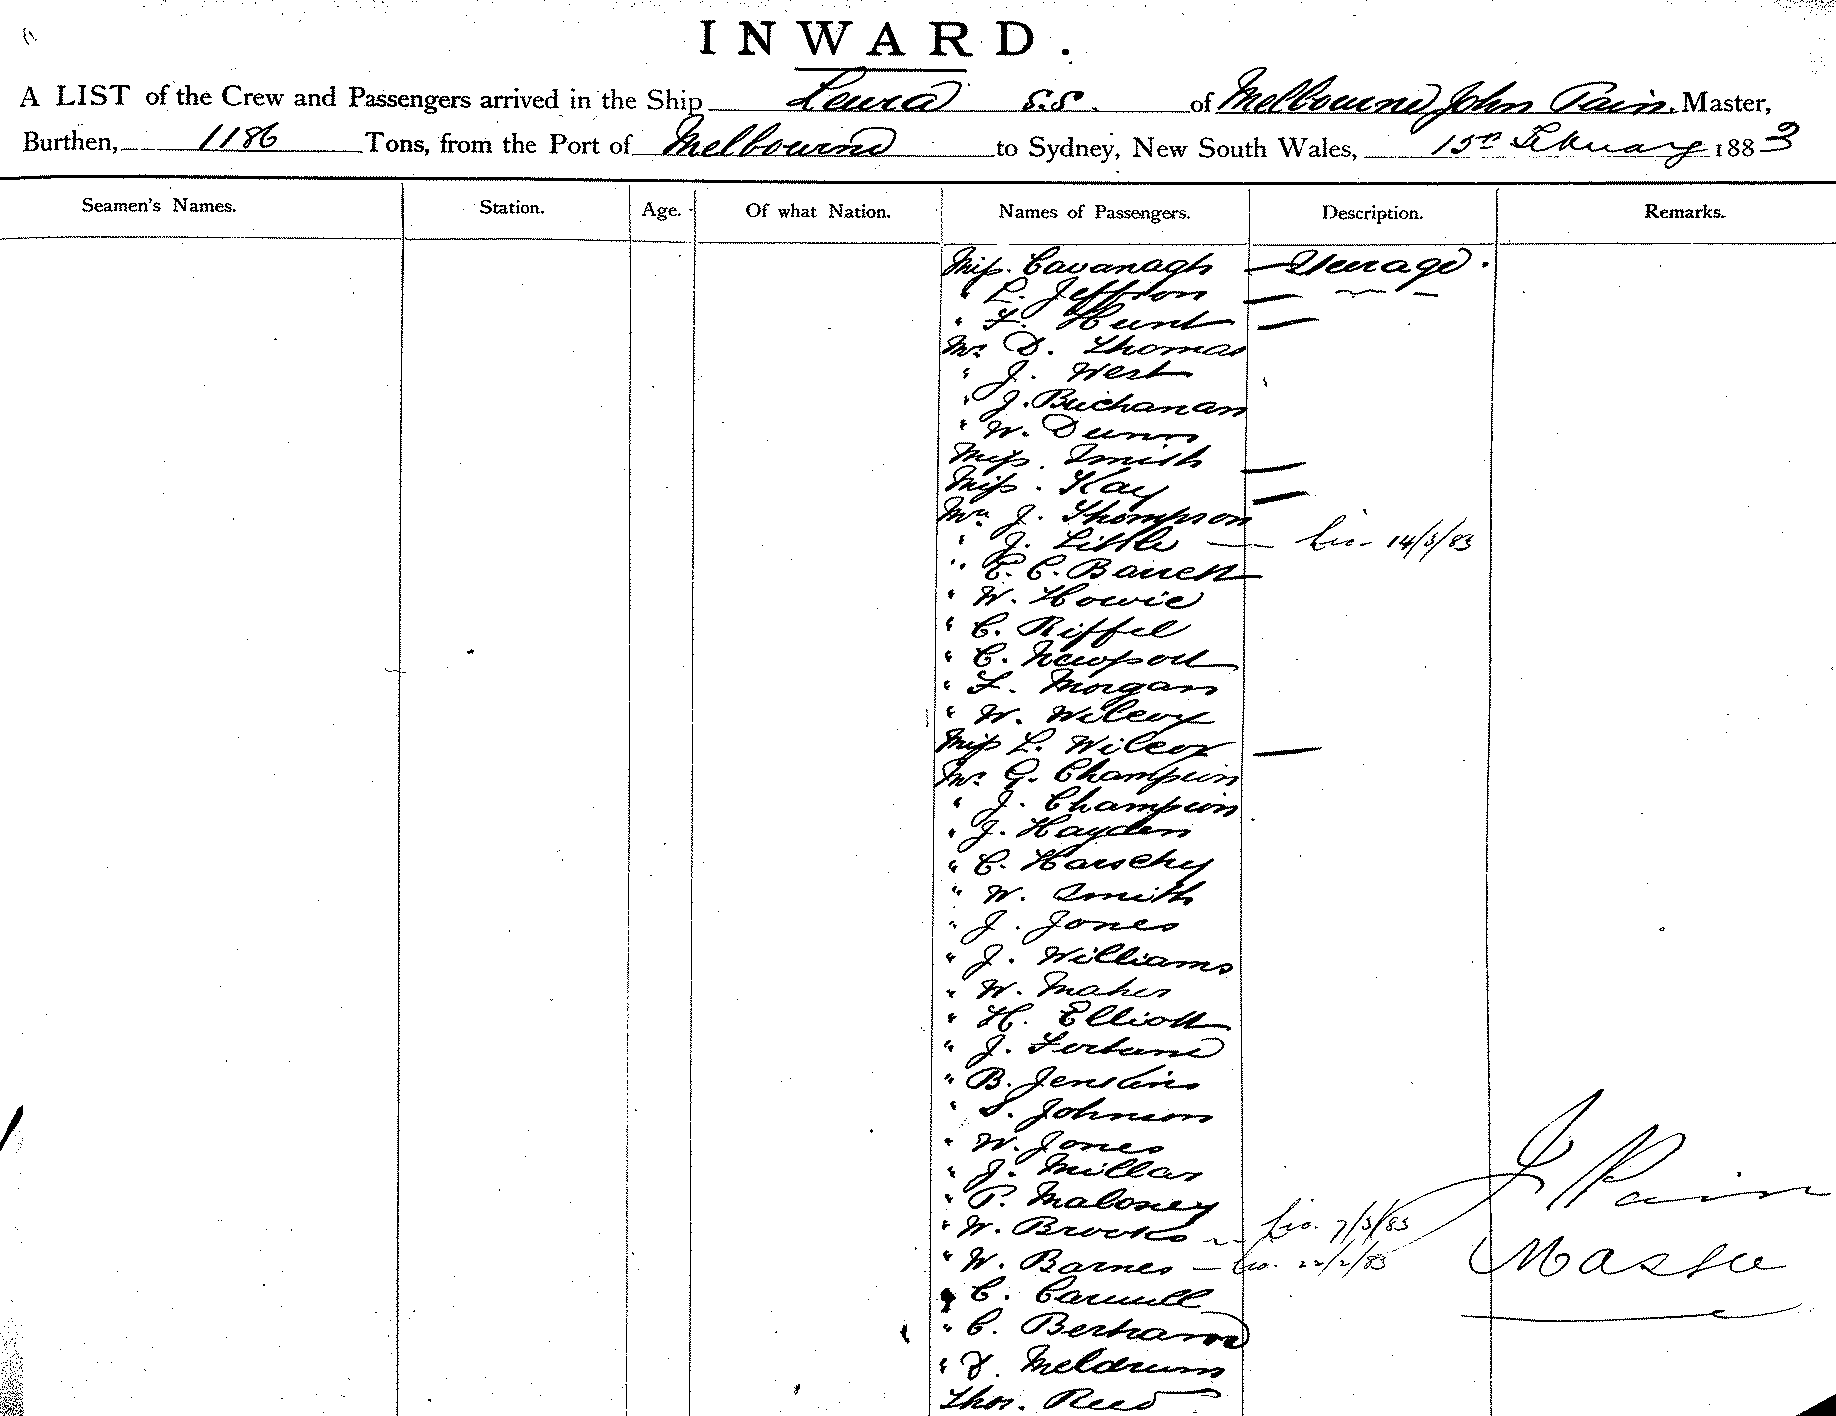 INWARD.
A LIST of the Crew and Passengers arrived in the Ship Leura S.S. of Melbourne John Pain, Master,
Burthen, 1186 Tons, from the Port of Melbourne to Sydney, New South Wales, 15th February 1883
Seamen's Names. Station. Age. Of what Nation. Names of Passengers. Description. Remarks.
Miss. Cavanagh — Steerage.
" L. Jeffson —
" F. Hunt —
Mr D. Thomas
" J. West
" J. Buchanan
" W. Dunn
Miss. Smith —
Miss. Kay —
Mr J. Thompson
" J. Little — 14/3/83
" E. C. Barrett
" W. Howie
" C. Riffel
" C. Newport
" F. Morgan
" W. Wilcox
Miss L. Wilcox —
Mr G. Champion
" J. Champion
" J. Hayden
" C. Harschy
" W. Smith
" J. Jones
" J. Williams
" W. Maher
" H. Elliott
" J. Fortune
" B. Jenkins
" S. Johnson
" W. Jones
" J. Millar
" P. Maloney
" W. Brooks — 7/3/83
" W. Barnes — 22/2/83
" C.
" C. Bertram
" D. Meldrum
Thos. Reed
J Pain
Master